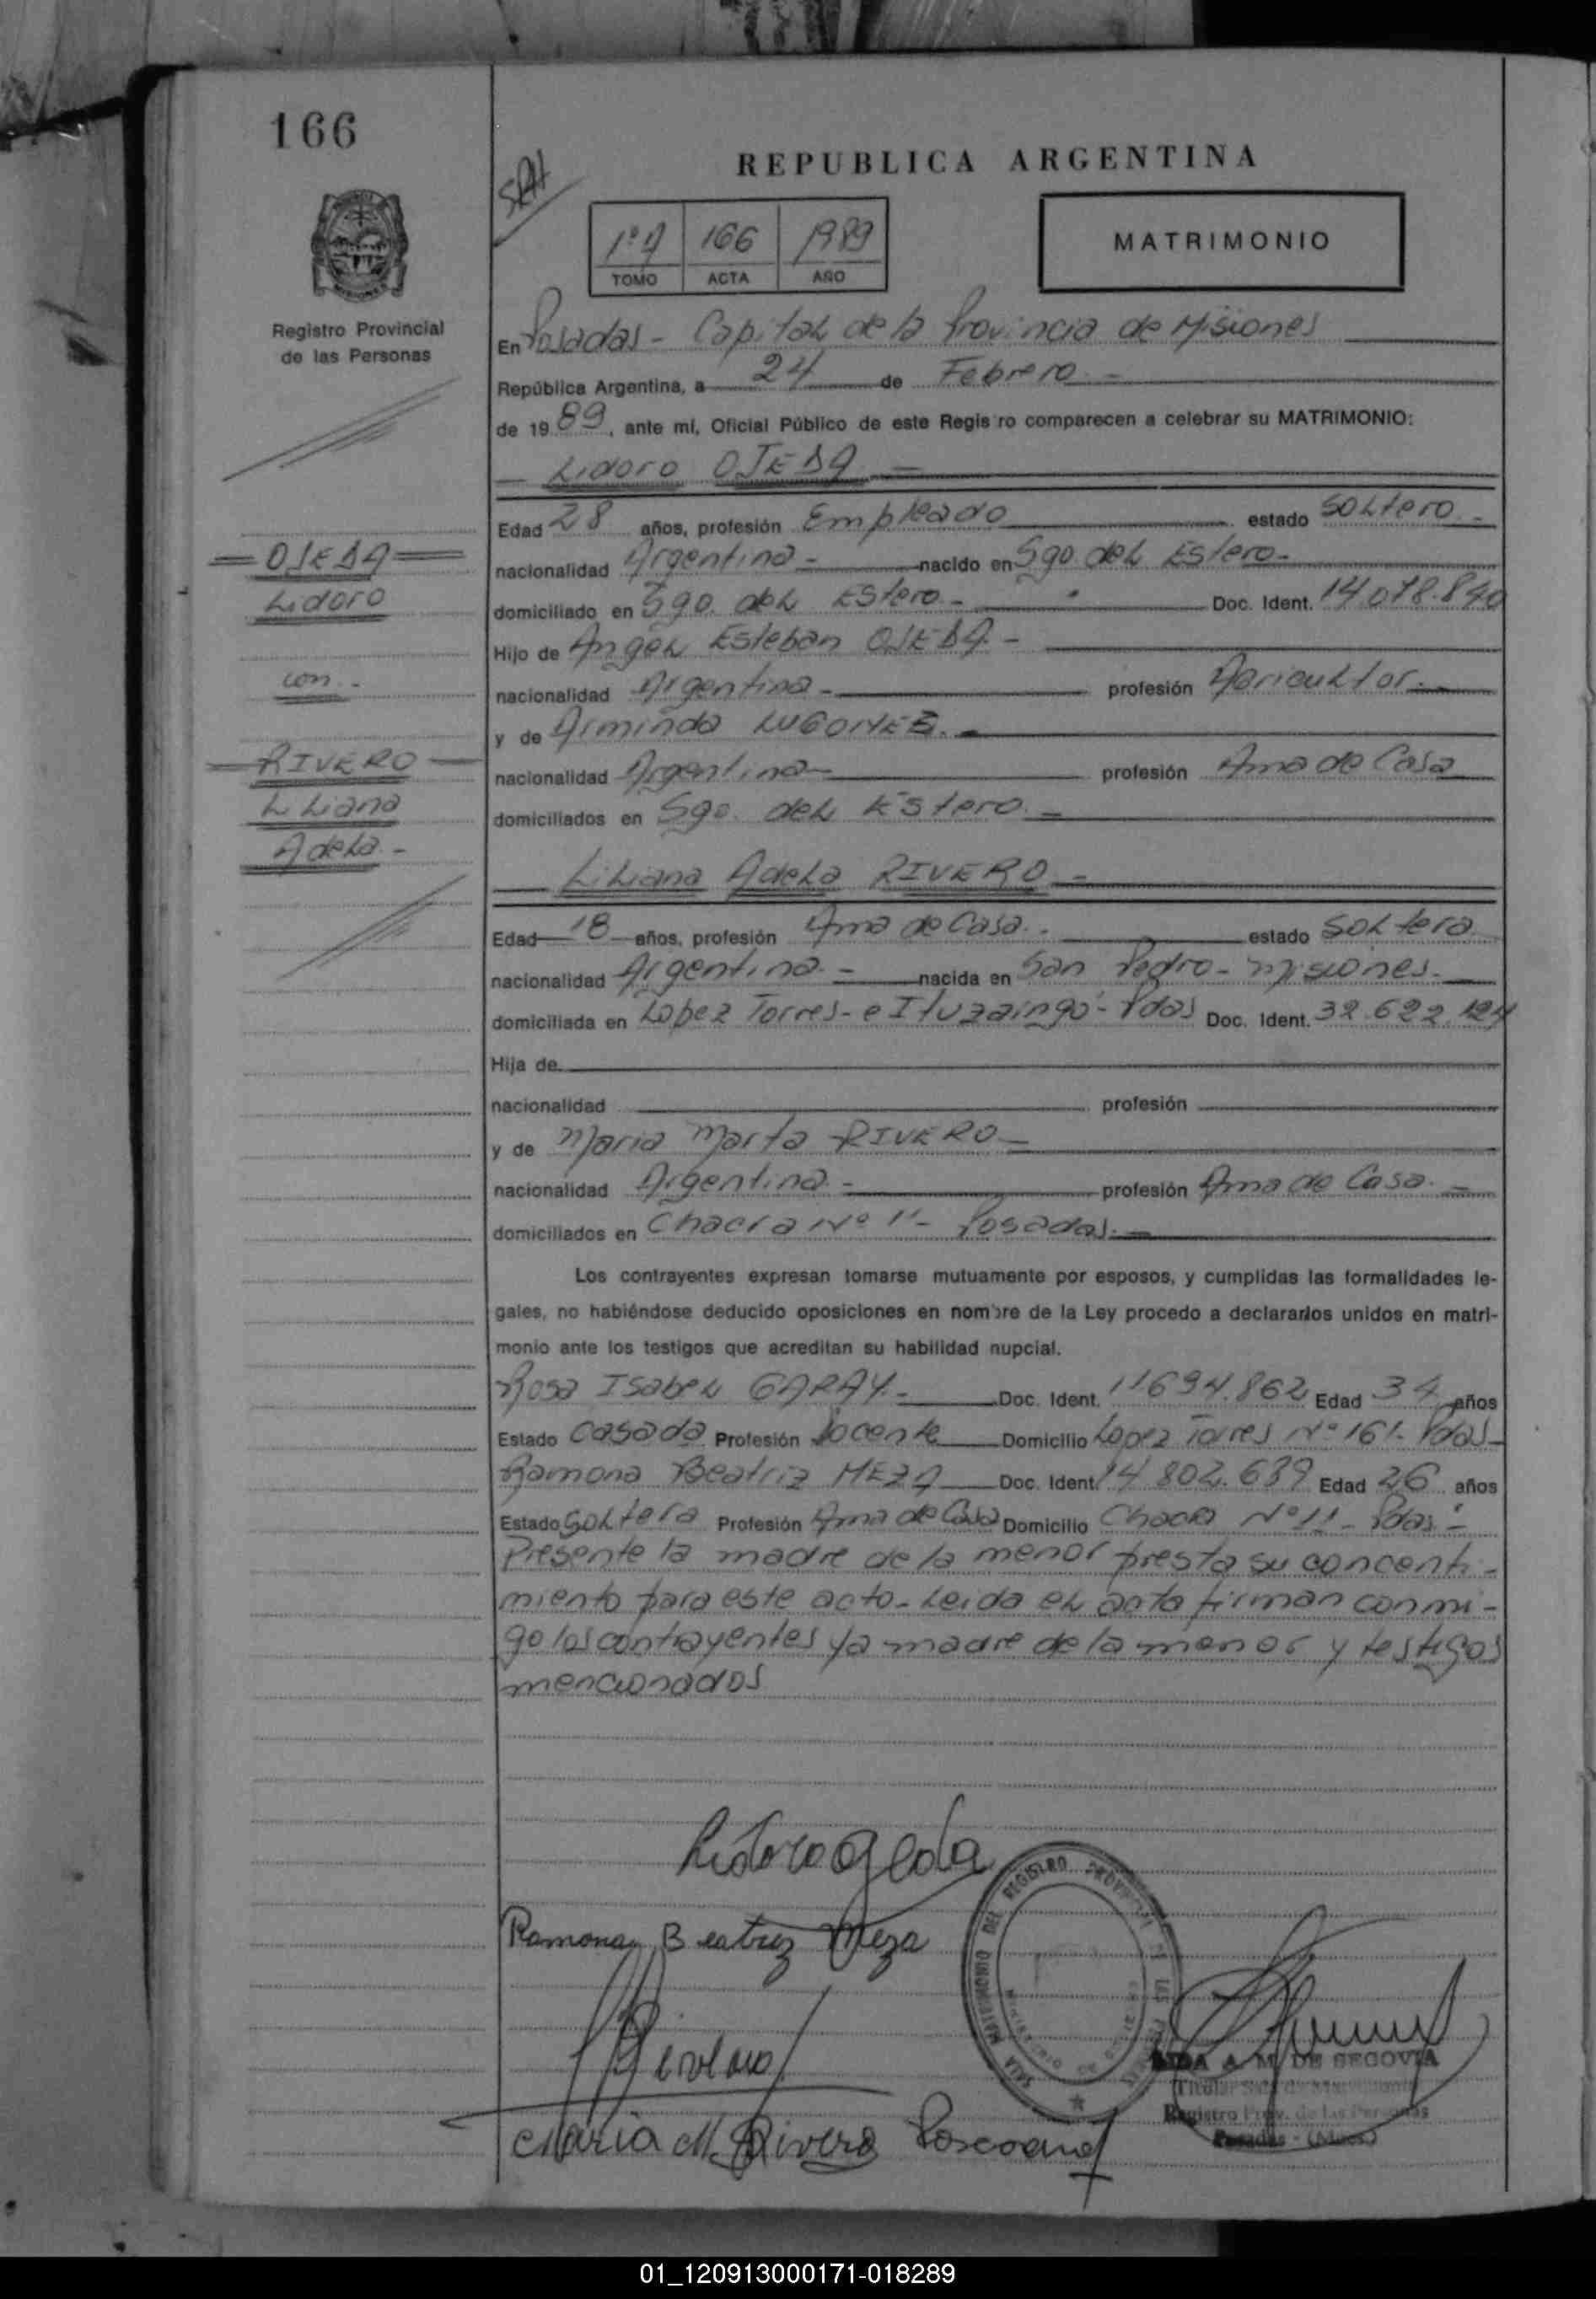 166
REPUBLICA ARGENTINA
1º A 166 1989
TOMO ACTA AÑO
MATRIMONIO
Registro Provincial
de las Personas
En Posadas - Capital de la Provincia de Misiones
República Argentina, a 24 de Febrero -
de 1989, ante mí, Oficial Público de este Registro comparecen a celebrar su MATRIMONIO:
- Lidoro OJEDA -
Edad 28 años, profesión Empleado estado Soltero -
nacionalidad Argentina - nacido en Sgo. del Estero -
domiciliado en Sgo. del Estero - Doc. Ident. 14.078.840
Hijo de Angel Esteban OJEDA. -
nacionalidad Argentina - profesión Agricultor. -
y de Arminda LUGONES. -
nacionalidad Argentina - profesión Ama de Casa
domiciliados en Sgo. del Estero. -
OJEDA
Lidoro
con -
RIVERO
Liliana
Adela -
Liliana Adela RIVERO -
Edad 18 años, profesión Ama de Casa. - estado Soltera
nacionalidad Argentina. - nacida en San Pedro - Misiones -
domiciliada en Lopez Torres - e Ituzaingó - Pdas Doc. Ident. 32.622.124
Hija de
nacionalidad profesión
y de Maria Marta RIVERO -
nacionalidad Argentina - profesión Ama de Casa. -
domiciliados en Chacra Nº 11 - Posadas. -
Los contrayentes expresan tomarse mutuamente por esposos, y cumplidas las formalidades le-
gales, no habiéndose deducido oposiciones en nombre de la Ley procedo a declararlos unidos en matri-
monio ante los testigos que acreditan su habilidad nupcial.
Rosa Isabel GARAY. - Doc. Ident. 11694.862 Edad 34 años
Estado Casada Profesión Docente Domicilio Lopez Torres Nº 161 - Pdas -
Ramona Beatriz MEZA Doc. Ident. 14.802.639 Edad 26 años
Estado Soltera Profesión Ama de Casa Domicilio Chacra Nº 11 - Pdas. -
Presente la madre de la menor presta su concenti-
miento para este acto - Leida el acta firman conmi-
go los contrayentes ya madre de la menor y testigos
mencionados
Lidoro Ojeda
Ramona Beatriz Meza
Rivero
Maria M. Rivero
SALA MATRIMONIO DEL REGISTRO PROVINCIAL DE LAS
A. M. DE SEGOVIA
Titular Sala de Matrimonio
Registro Prov. de las Personas
Posadas - (Mnes.)
01_120913000171-018289